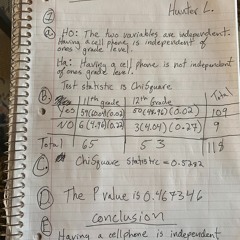 Hunter L.
1
a HO: The two variables are independent.
Having a cell phone is independent of
ones grade level.
Ha: Having a cell phone is not independent
of ones grade level.
Test statistic is ChiSquare
B. 11th grade 12th Grade Total
Yes 59(60.04)(0.02) 50(48.96)(0.02) 109
NO 6(4.96)(0.22) 3(4.04)(0.27) 9
Total 65 53 118
C. ChiSquare statistic = 0.5282
D. The P value is 0.467346
E conclusion
Having a cellphone is independent